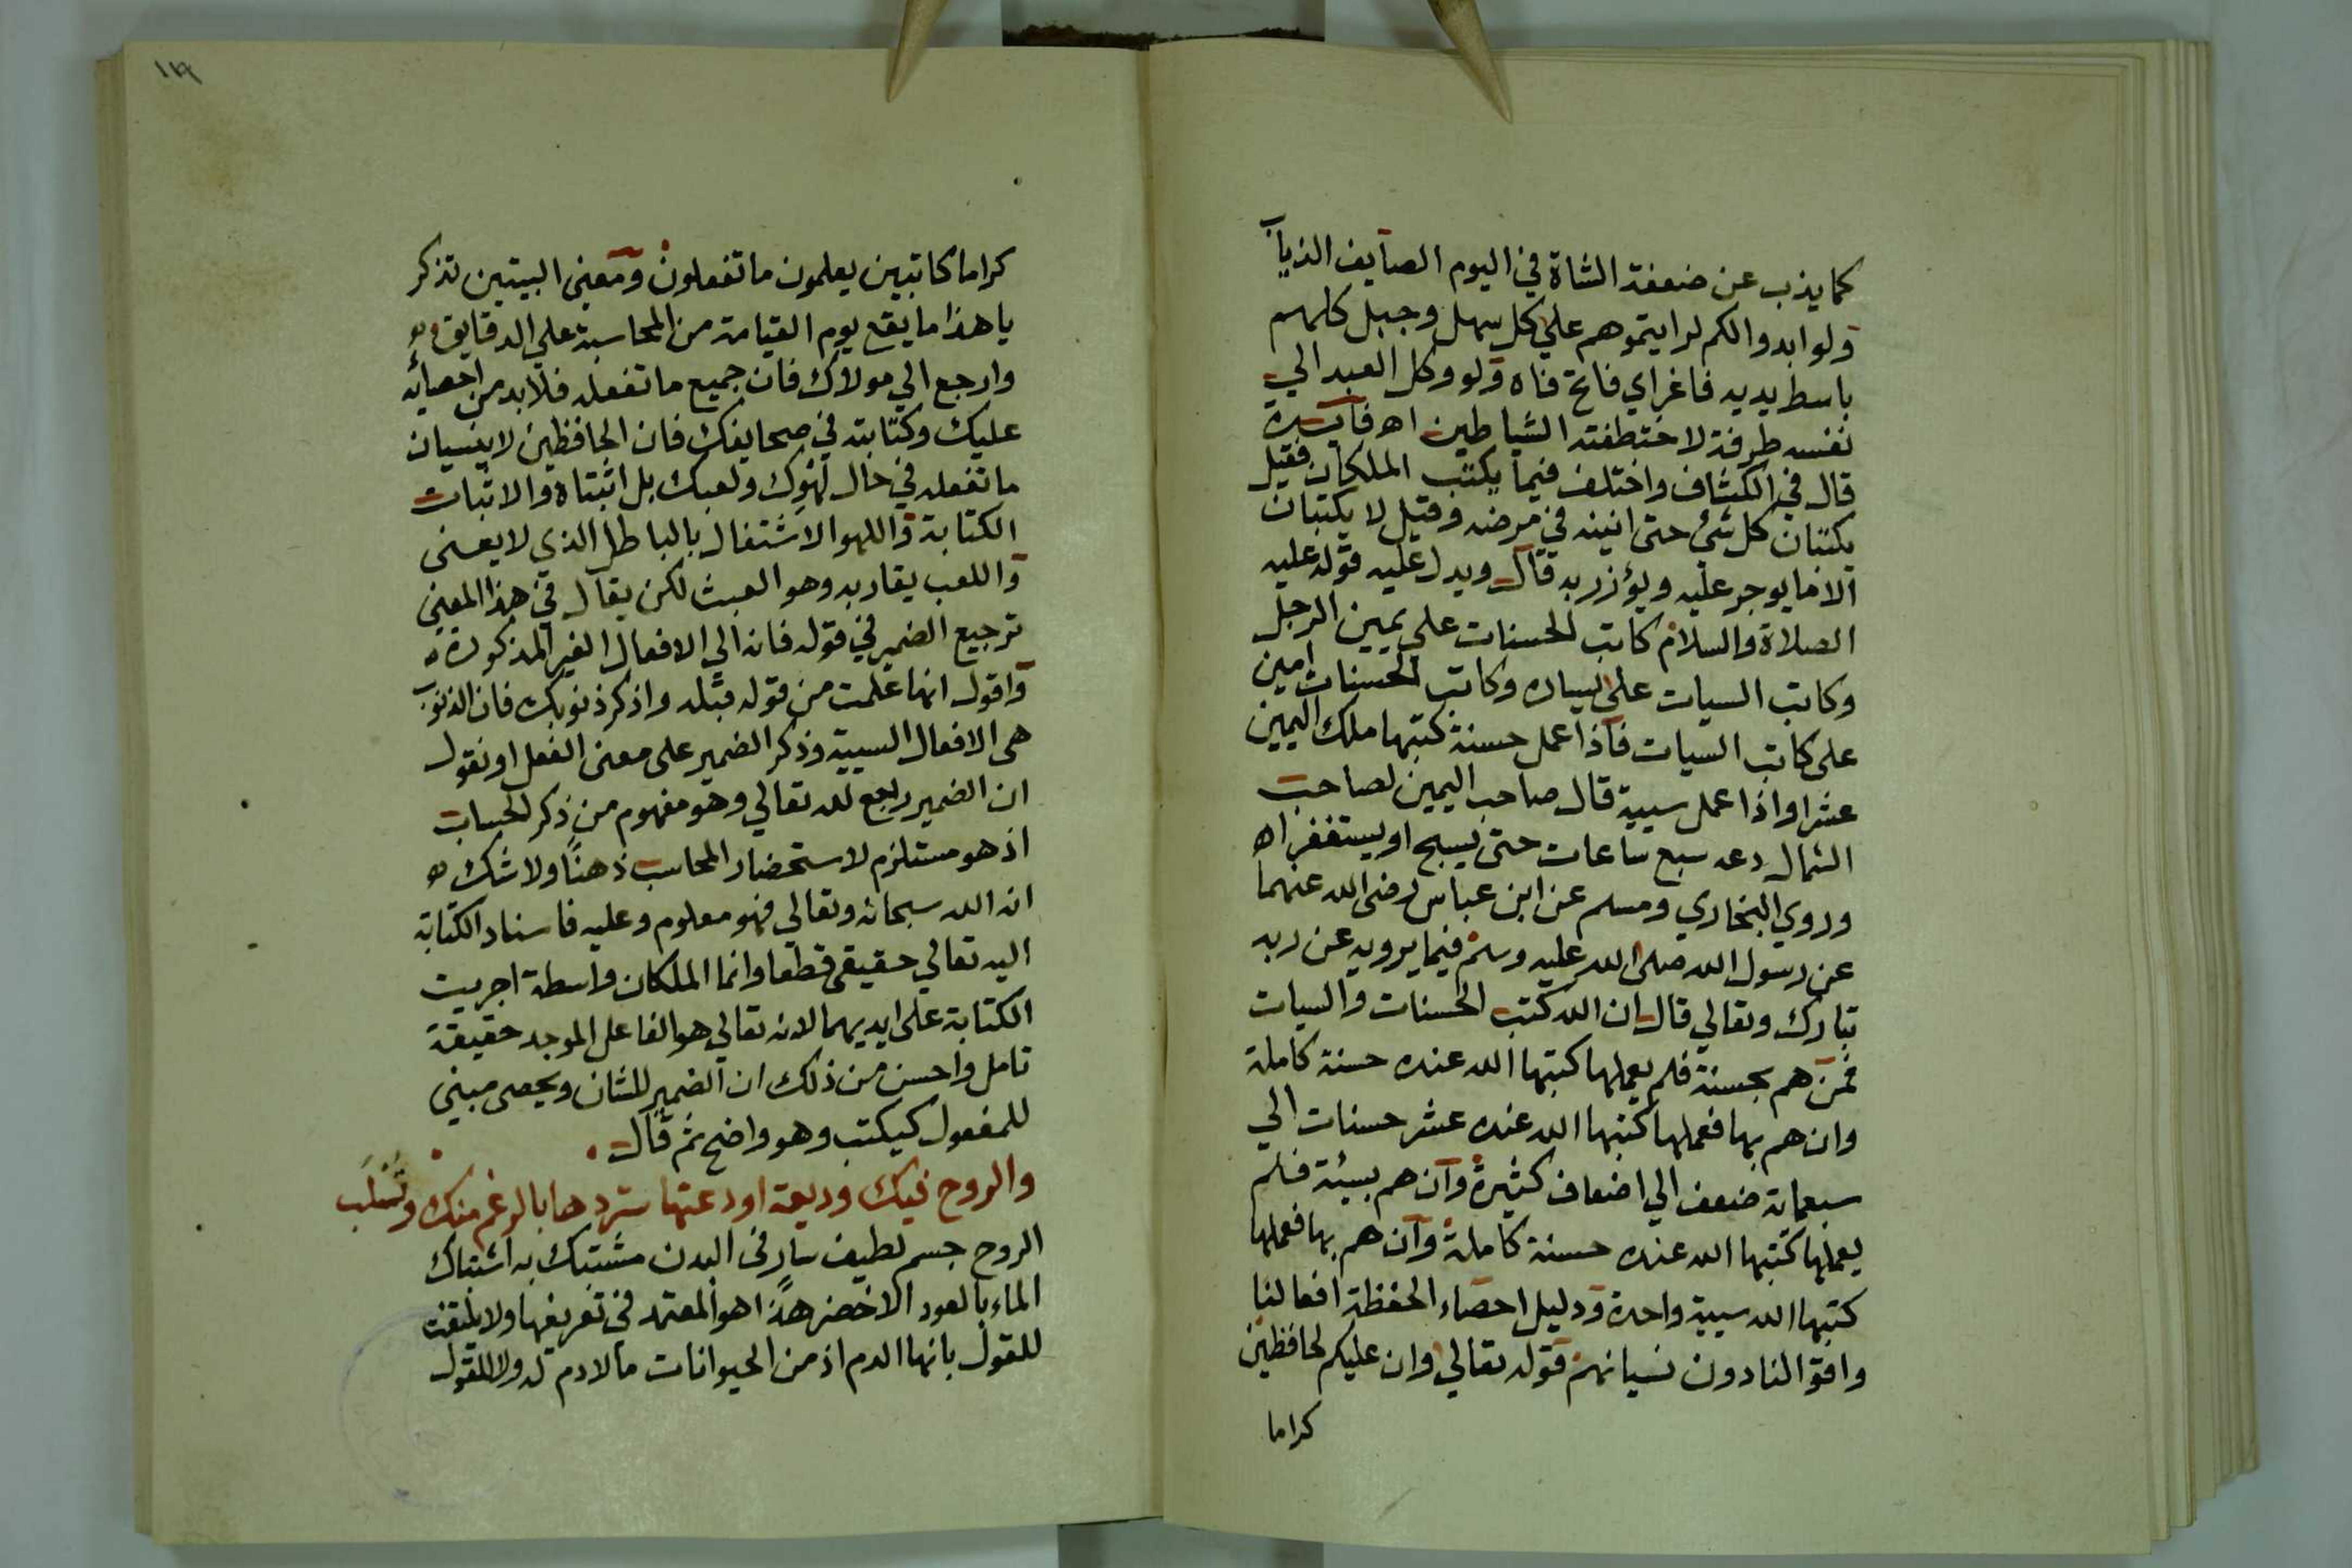 كما يذب عن ضعفة الشاة في اليوم الصايف الذياب
ولو ابدوا لكم لرايتموهم علي كل سهل وجبل كلهم
باسط يديه فاغراي فاتح فاه ولو وكل العبد الي
نفسه طرفة لاختطفته الشياطين اه فايدة
قال في الكشاف واختلف فيما يكتب الملكان فقيل
يكتبان كل شئ حتى انينه في مرضه وقيل لا يكتبان
الا ما يوجر عليه ويؤزر به قال ويدل عليه قوله عليه
الصلاة والسلام كاتب الحسنات علي يمين الرجل
وكاتب السيات علي يساره وكاتب الحسنات امين
على كاتب السيات فاذا عمل حسنة كتبها ملك اليمين
عشرا واذا عمل سيية قال صاحب اليمين لصاحب
الشمال دعه سبع ساعات حتى يسبح او يستغفر اه
وروي البخاري ومسلم عن ابن عباس رضي الله عنهما
عن رسول الله صلى الله عليه وسلم فيما يرويه عن ربه
تبارك وتعالي قال ان الله كتب الحسنات والسيات
فمن هم بحسنة فلم يعملها كتبها الله عنده حسنة كاملة
وان هم بها فعملها كتبها الله عنده عشر حسنات الي
سبعماية ضعف الي اضعاف كثيرة وان هم بسيئة فلم
يعملها كتبها الله عنده حسنة كاملة وان هم بها فعملها
كتبها الله سيية واحدة ودليل احصاء الحفظة افعالنا
وافوالنا دون نسيانهم قوله تعالي وان عليكم لحافظين
كراما
١١٩
كراما كاتبين يعلمون ما تفعلون ومعنى البيتين تذكر
يا هذا ما يقع يوم القيامة من المحاسبة علي الدقايق
وارجع الي مولاك فان جميع ما تفعله فلا بد من احصائه
عليك وكتابته في صحايفك فان الحافظين لا ينسيان
ما تفعله في حال لهوك ولعبك بل اثبتاه والاثبات
الكتابة واللهو الاشتغال بالباطل الذي لا يعنى
واللعب يقاربه وهو العبث لكن يقال في هذا المعني
ترجيع الضمير في قوله فانه الي الافعال الغير المذكورة
واقول انها علمت من قوله قبله واذكر ذنوبك فان الذنوب
هى الافعال السيية وذكر الضمير على معنى الفعل او نقول
ان الضمير راجع لله تعالي وهو مفهوم من ذكر الحساب
اذ هو مستلزم لاستحضار المحاسب ذهنا ولا شك
انه الله سبحانه وتعالي فهو معلوم وعليه فاسناد الكتابة
اليه تعالي حقيقى قطعا وانما الملكان واسطة اجريت
الكتابة على ايديهما لانه تعالي هو الفاعل الموجد حقيقة
تامل واحسن من ذلك ان الضمير للشان ويحصى مبني
للمفعول كيكتب وهو واضح ثم قال
والروح فيك وديعة اودعتها ستردها بالرغم منك وتسلب
الروح جسم لطيف سار فى البدن مشتبك به اشتباك
الماء بالعود الاخضر هذا هو المعتمد فى تعريفها ولا يلتفت
للقول بانها الدم اذ من الحيوانات ما لا دم له ولا للقول